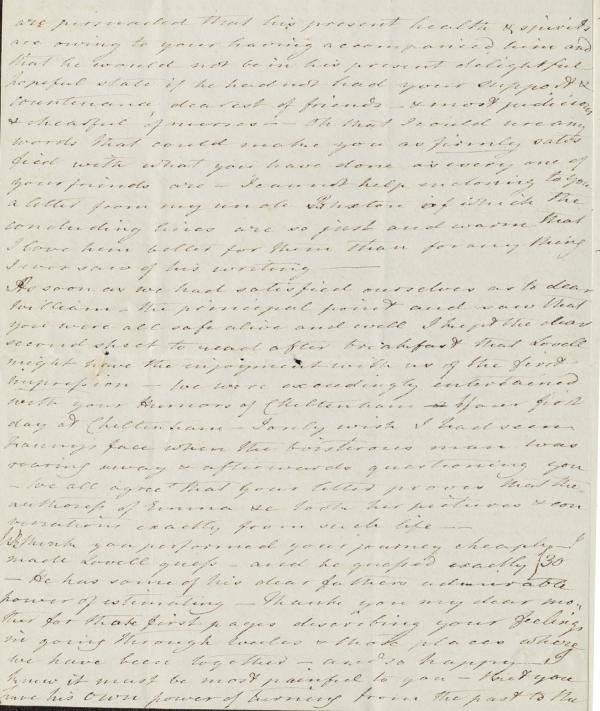 are persuaded that his present health & spirits
are owing to your having accompanied him and
that he would not be in his present delightful
hopeful state if he had not had your support &
countenance dearest of friends - & most judicious
& chearful of nurses - Oh that I could use any
words that could make you as firmly satis
fied with what you have done as every one of
your friends are - I cannot help inclosing to you
a letter from my uncle Ruxton of which the
concluding lines are so just and warm that
I love him better for them than for any thing
I ever saw of his writing -
As soon as we had satisfied ourselves as to dear
William - the principal point and saw that
you were all safe alive and well I kept the dear
second sheet to read after breakfast that Lovell
might have the enjoyment with us of the first
impression - We were exceedingly entertained
with your Humors of Cheltenham & your first
day at Cheltenham - I only wish I had seen
Fanny's face when the boisterous man was
roaring away & afterwards questioning you
- We all agree that your letter proves that the
authoress of Emma &c took her pictures & con
versations exactly from such life -
I think you performed your journey cheaply - I
made Lovell guess - and he guessed exactly £30
- He has some of his dear fathers admirable
power of estimating - Thank you my dear mo-
ther for that first pages describing your feelings
in going through Wales & those places where
we have been together - and so happy - I
know it must be most painful to you - But you
have his own power of turning from the past to the